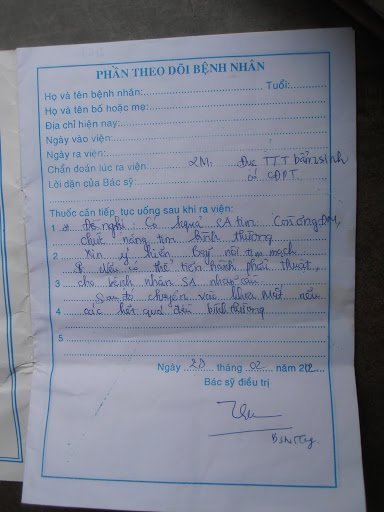 PHẦN THEO DÕI BỆNH NHÂN
Họ và tên bệnh nhân: Tuổi:
Họ và tên bố hoặc mẹ:
Địa chỉ hiện nay:
Ngày vào viện:
Ngày ra viện:
Chẩn đoán lúc ra viện: 2M. Đục TTT bẩm sinh
Lời dặn của Bác sỹ có CĐPT.
Thuốc cần tiếp tục uống khi ra viện:
1 Đề nghị: Có kquả SA tim: Còn ống ĐM,
chức năng tim bình thường
2 Xin ý kiến Bsỹ nội tim mạch
Nếu có thể tiến hành phẫu thuật,
3 cho bệnh nhân SA nhãn cầu
Sau đó chuyển vào khoa Mắt nếu
4 các kết quả đều bình thường
5
Ngày 20 tháng 02 năm 2012
Bác sỹ điều trị